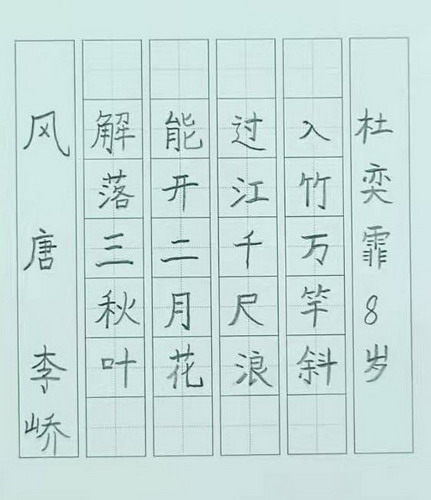 风 唐 李峤
解落三秋叶
能开二月花
过江千尺浪
入竹万竿斜
杜奕霏8岁